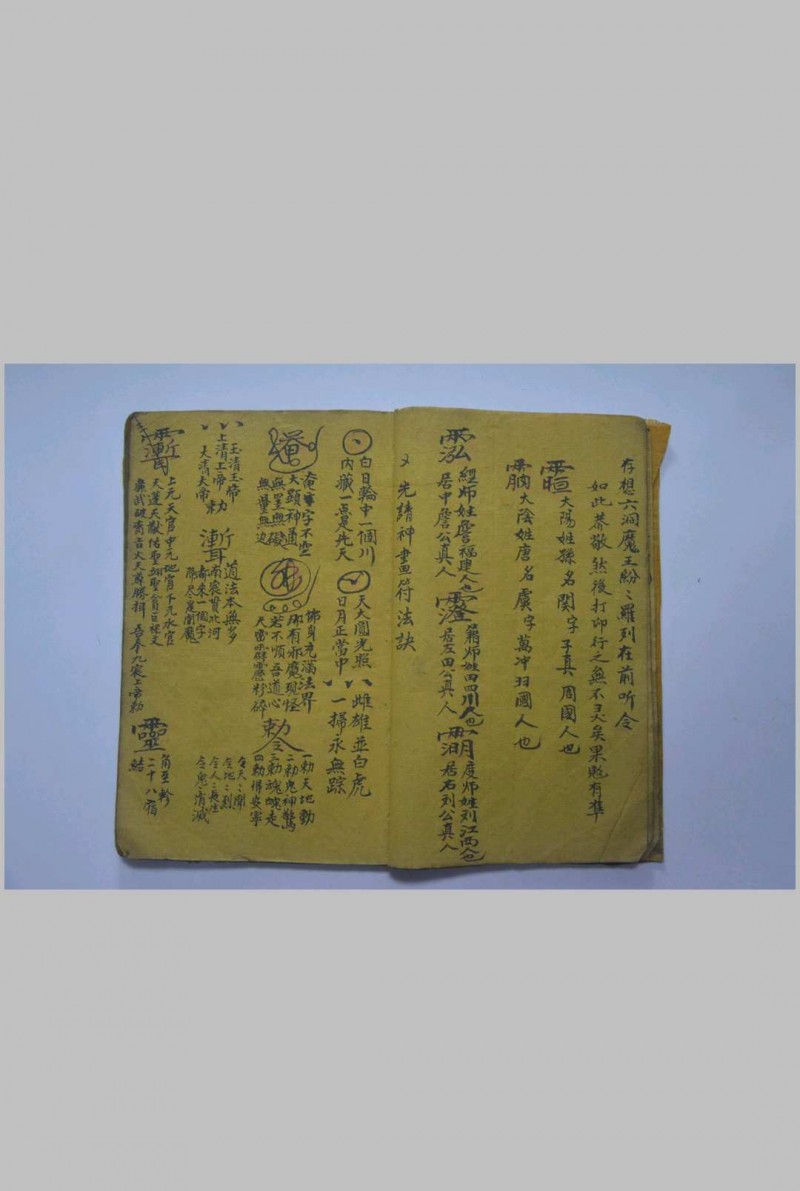 存想六洞魔王紛〻羅列在前听令
如此恭敬然後打印行之無不灵矣果貶有準
䨔 太陽姓孫名開字子真周國人也
太陰姓唐名虞字萬冲羽國人也
經師姓詹福建人也
居中詹公真人
籍師姓田四川人也
居左田公真人
度師姓刘江西人也
居右刘公真人
又先請神畫符法訣
白日輪中一個川
內藏一点是先天
天大圓光照
日月正當中
雌雄並白虎
一掃永無踪
唵字不空
大顕神通
無罣無礙
無量無边
佛身充滿法界
那有邪魔現怪
若不順吾道心
天雷霹靂粉碎
勅令
一勅天地動
二勅鬼神驚
三勅魂魄走
四勅得安寧
玉清玉帝
上清上帝
太清大帝 勅
道法本無多
南辰貫北河
都来一個字
降尽是閑魔
令天〻開
令地〻烈
令人〻長生
令鬼〻消滅
上元天官中元地官下元水官
天蓬天猷佑聖翊聖
靈
角至軫
二十八宿
結